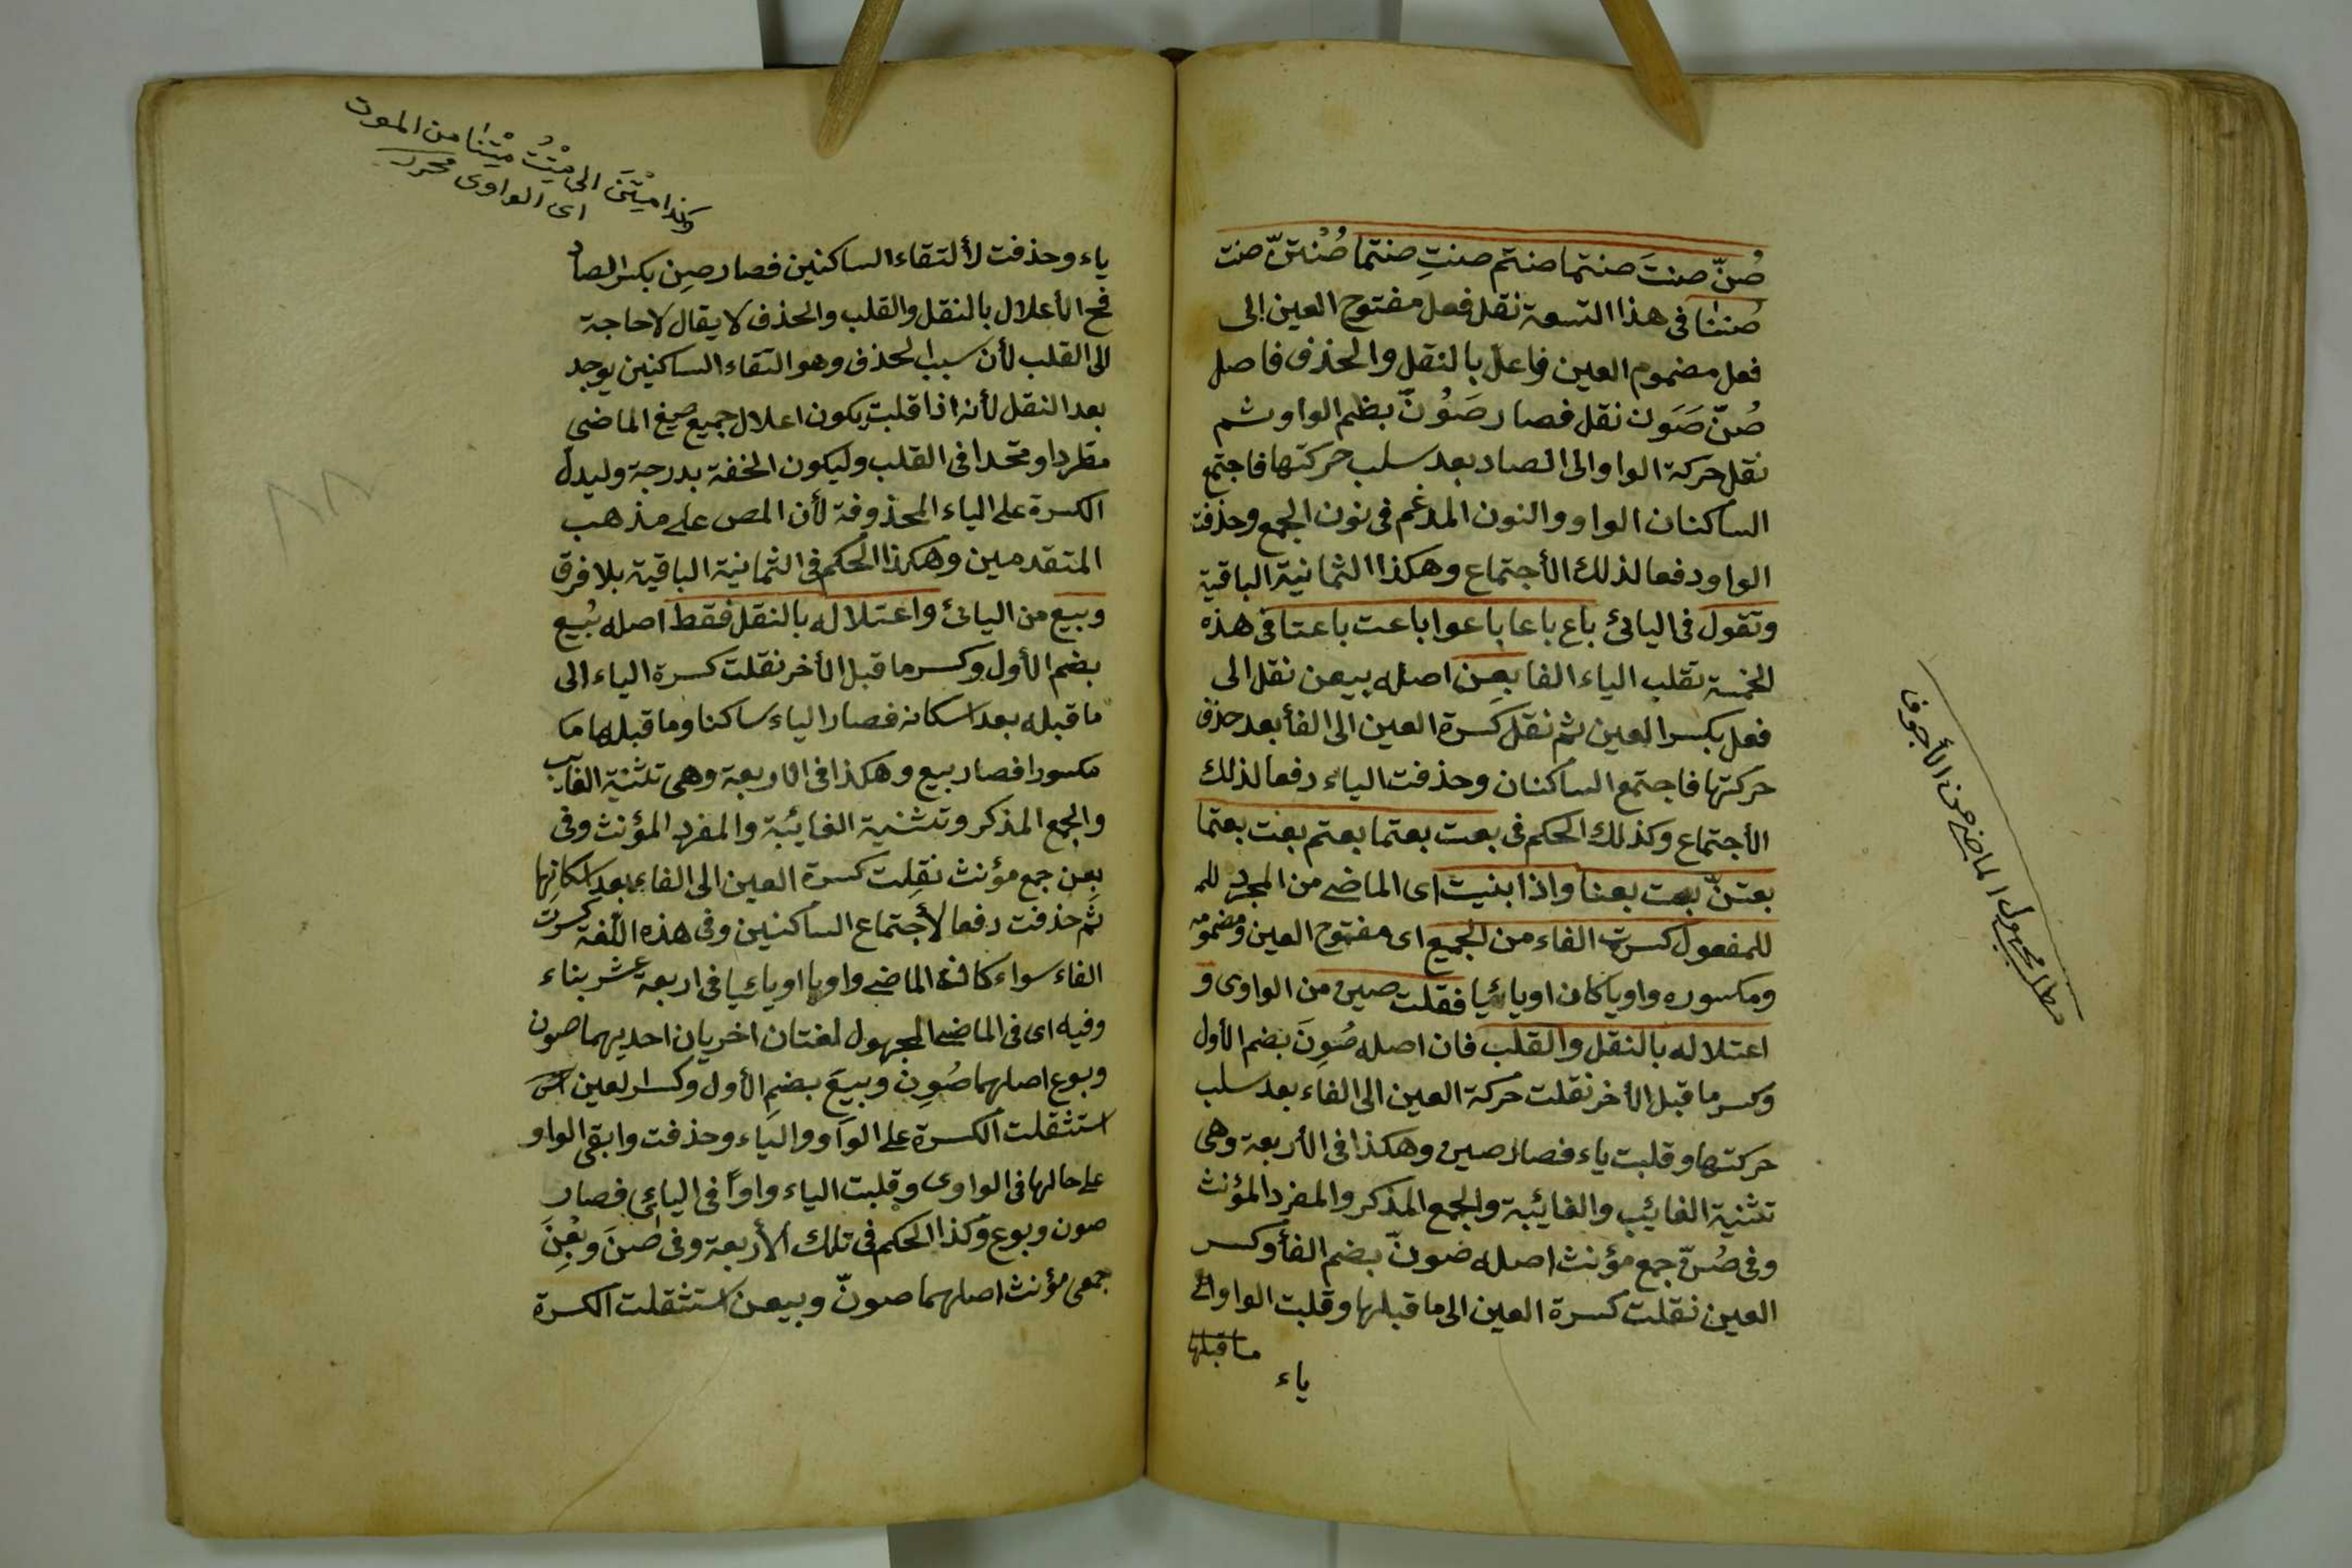 صُنّ صنتَ صنتما صنتم صنتِ صنتما صُنْتنّ صنت
صُننا فى هذا التسعة نقل فعل مفتوح العين الى
فعل مضموم العين فاعل بالنقل والحذف فاصل
صُنّ صَوَن نقل فصار صَوُنّ بظم الواو ثم
نقل حركة الواو الى الصاد بعد سلب حركتها فاجتمع
الساكنان الواو والنون المدغم فى نون الجمع وحذفت
الواو دفعا لذلك الأجتماع وهكذا الثمانية الباقية
وتقول فى اليائى باع باعا باعوا باعت باعتا فى هذه
الخمسة تقلب الياء الفا بعن اصله بيعن نقل الى
فعل بكسر العين ثم نقل كسرة العين الى الفأ بعد حذف
حركتها فاجتمع الساكنان وحذفت الياء دفعا لذلك
الأجتماع وكذلك الحكم فى بعت بعتما بعتم بعت بعتما
بعتنّ بعت بعنا واذا بنيت اى الماضى من المجرد للم
للمفعول كسرت الفاء من الجميع اى مفتوح العين ومضمومه
ومكسوره واويا كان او يائيا فقلت صين من الواوى و
اعتلاله بالنقل والقلب فان اصله صُوِنَ بضم الأول
وكسر ما قبل الأخر نقلت حركة العين الى الفاء بعد سلب
حركتها وقلبت ياء فصار صين وهكذا فى الأربعة وهى
تثنية الغائب والغائبة والجمع المذكر والمفرد المؤنث
وفى صُنّ جمع مؤنث اصله صونّ بضم الفأ وكسر
العين نقلت كسرة العين الى ما قبلها وقلبت الواو الى
ما قبلها
ياء
مطلب مجهول الماضى من الأجوف
وكذا مِتْنَ الى مِتُّ مِتْنا من الموت
اى الواوى محرر
ياء وحذفت لألتقاء الساكنين فصار صِن بكسر الصاد
فح الأعلال بالنقل والقلب والحذف لا يقال لا حاجة
الى القلب لأن سبب الحذف وهو التقاء الساكنين يوجد
بعد النقل لأنه اذا قلبت يكون اعلال جميع صيغ الماضى
مطردا ومتحدا فى القلب وليكون الخفة بدرجة وليدل
الكسرة على الياء المحذوفة لأن المص على مذهب
المتقدمين وهكذا الحكم فى الثمانية الباقية بلا فرق
وبيع من اليائى واعتلاله بالنقل فقط اصله بُيِع
بضم الأول وكسر ما قبل الأخر نقلت كسرة الياء الى
ما قبله بعد اسكانه فصار الياء ساكنا وما قبلها ما
مكسورا فصار بيع وهكذا فى الاربعة وهى تثنية الغائب
والجمع المذكر وتثنية الغائبة والمفرد المؤنث وفى
بعن جمع مؤنث نقلت كسرة العين الى الفاء بعد اسكانها
ثم حذفت دفعا لأجتماع الساكنين وفى هذه اللغة كسرت
الفاء سواء كانت الماضى واويا او يائيا فى اربعة عشر بناء
وفيه اى فى الماضى المجهول لغتان اخريان احديهما صون
وبوع اصلهما صُوِن وبيعَ بضم الأول وكسر العين
استثقلت الكسرة على الواو والياء وحذفت وابقى الواو
على حالها فى الواوى وقلبت الياء واوًا فى اليائى فصار
صون وبوع وكذا الحكم فى تلك الأربعة وفى صُنَ وبُعْنَ
جمعى مؤنث اصلهما صونّ وبيعن استثقلت الكسرة